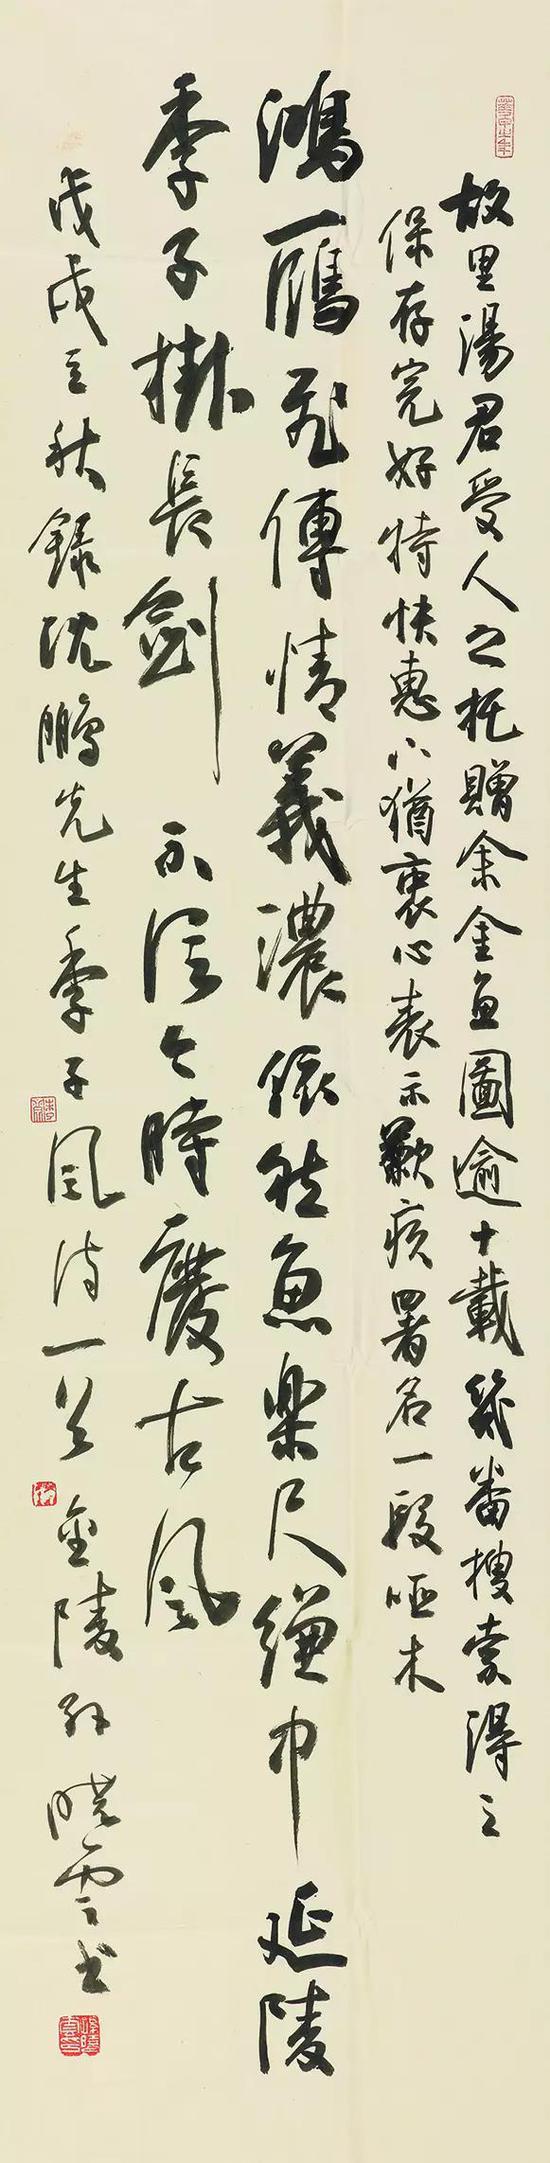 故里湯君受人之托贈余金魚圖逾十載幾番搜索得之
保存完好特快惠下猶衷心表示歉疚署名一段啞木
鴻雁飛傳情義濃依然魚樂尺縑中延陵
季子掛長劍不信今時廢古風
戊戌立秋錄沈鵬先生季子風詩一首金陵孫曉雲書